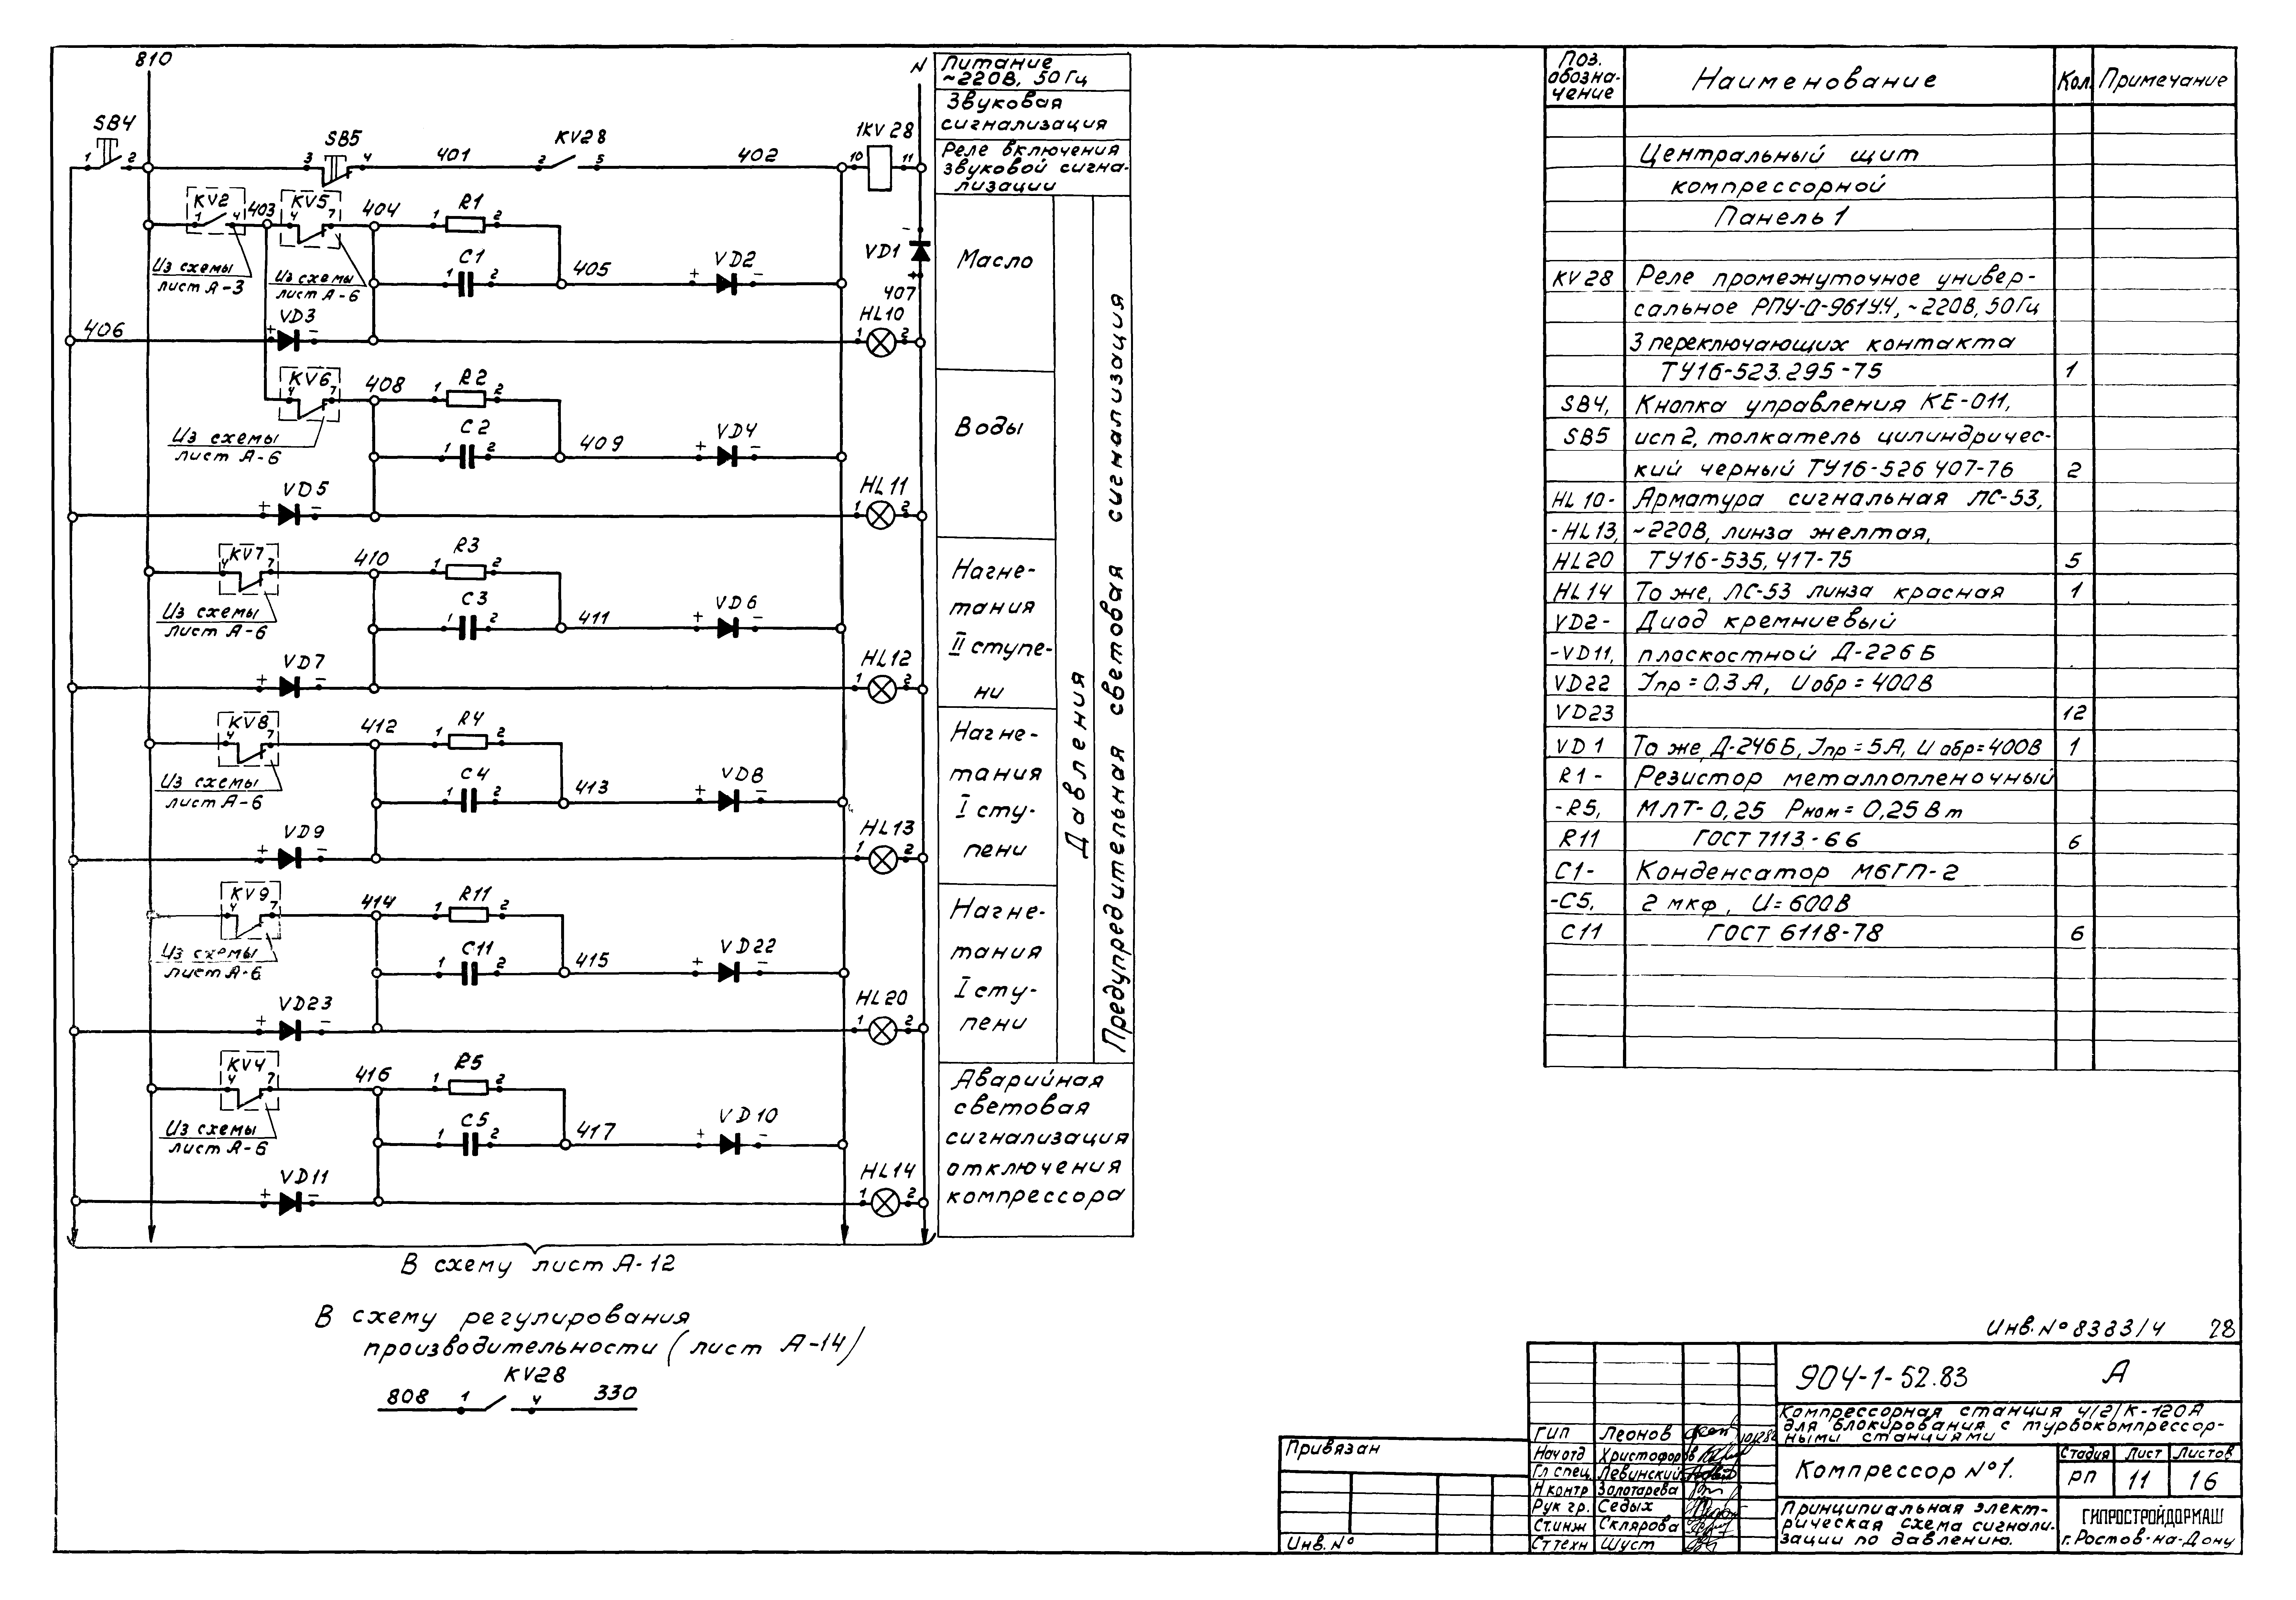 810
N
Питание
~220В, 50Гц
Звуковая
сигнализация
Реле включения
звуковой сигна-
лизации
SB4
1 2
SB5
3 4
401
KV28
2 5
402
1KV28
10 11
KV2
1 4
403
KV5
4 7
404
R1
1 2
Из схемы
лист А-3
Из схемы
лист А-6
C1
1 2
405
VD2
+ -
VD1
- +
407
Масло
406
VD3
+ -
HL10
1 2
KV6
4 7
408
R2
1 2
Из схемы
лист А-6
C2
1 2
409
VD4
+ -
Воды
VD5
+ -
HL11
1 2
KV7
4 7
410
R3
1 2
Из схемы
лист А-6
C3
1 2
411
VD6
+ -
Нагне-
тания
II ступе-
ни
VD7
+ -
HL12
1 2
KV8
4 7
412
R4
1 2
Из схемы
лист А-6
C4
1 2
413
VD8
+ -
Нагне-
тания
I сту-
пени
VD9
+ -
HL13
1 2
KV9
4 7
414
R11
1 2
Из схемы
лист А-6
C11
1 2
415
VD22
+ -
Нагне-
тания
I сту-
пени
VD23
+ -
HL20
1 2
Давления
Предупредительная световая сигнализация
KV4
4 7
416
R5
1 2
Из схемы
лист А-6
C5
1 2
417
VD10
+ -
VD11
+ -
HL14
1 2
Аварийная
световая
сигнализация
отключения
компрессора
В схему лист А-12
В схему регулирования
производительности (лист А-14)
KV28
808 1 4 330
Поз. обозна-чение Наименование Кол. Примечание
Центральный щит
компрессорной
Панель 1
KV28 Реле промежуточное универ-
сальное РПУ-0-961У4, ~220В, 50Гц
3 переключающих контакта
ТУ16-523.295-75 1
SB4, Кнопка управления КЕ-011,
SB5 исп 2, толкатель цилиндричес-
кий черный ТУ16-526 407-76 2
HL10- Арматура сигнальная ЛС-53,
-HL13, ~220В, линза желтая,
HL20 ТУ16-535, 417-75 5
HL14 То же, ЛС-53 линза красная 1
VD2- Диод кремниевый
-VD11, плоскостной Д-226Б
VD22 Iпр = 0.3А, Uобр = 400В
VD23 12
VD1 То же, Д-246Б, Iпр = 5А, Uобр = 400В 1
R1- Резистор металлопленочный
-R5, МЛТ-0,25 Рном = 0,25Вт
R11 ГОСТ 7113-66 6
C1- Конденсатор МБГП-2
-C5, 2 мкф, U = 600В
C11 ГОСТ 6118-78 6
Инв. № 8383/4 28
904-1-52.83 А
Компрессорная станция 4/2/К-120А
для блокирования с турбокомпрессор-
ными станциями
ГИП Леонов
Нач отд Христофоров
Гл спец. Левинский
Н контр Золотарева
Рук гр. Седых
Ст.инж Склярова
Ст техн Шуст
Компрессор №1.
Стадия Лист Листов
РП 11 16
Принципиальная элект-
рическая схема сигнали-
зации по давлению.
ГИПРОСТРОЙДОРМАШ
г. Ростов-на-Дону
Привязан
Инв. №